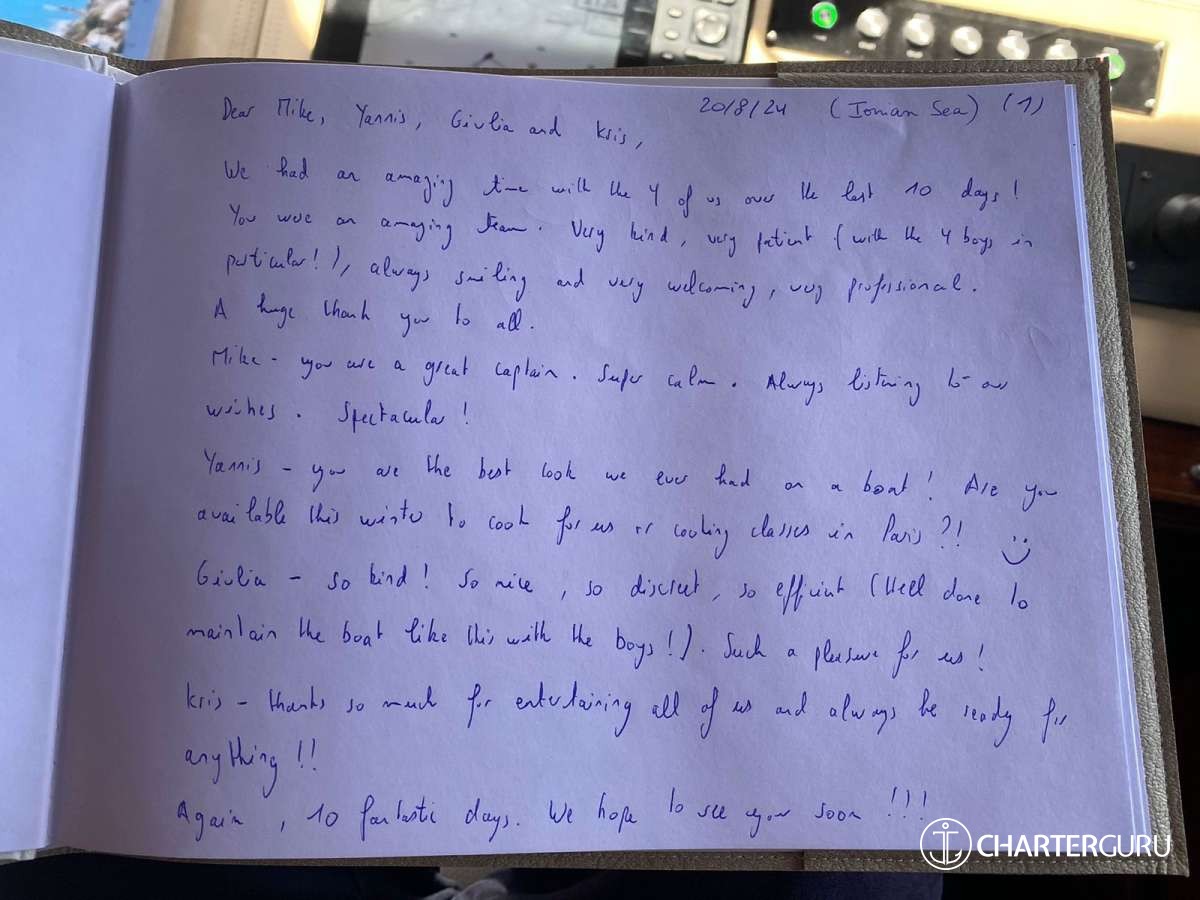 20/8/24 (Ionian Sea) (1)
Dear Mike, Yannis, Giulia and Kris,
We had an amazing time with the 4 of us over the last 10 days!
You were an amazing team. Very kind, very patient (with the 4 boys in
particular!), always smiling and very welcoming, very professional.
A huge thank you to all.
Mike - you are a great captain. Super calm. Always listening to our
wishes. Spectacular!
Yannis - you are the best cook we ever had on a boat! Are you
available this winter to cook for us or cooking classes in Paris?!
Giulia - so kind! So nice, so discreet, so efficient (Well done to
maintain the boat like this with the boys!). Such a pleasure for us!
Kris - thanks so much for entertaining all of us and always be ready for
anything!!
Again, 10 fantastic days. We hope to see you soon!!!
CHARTERGURU